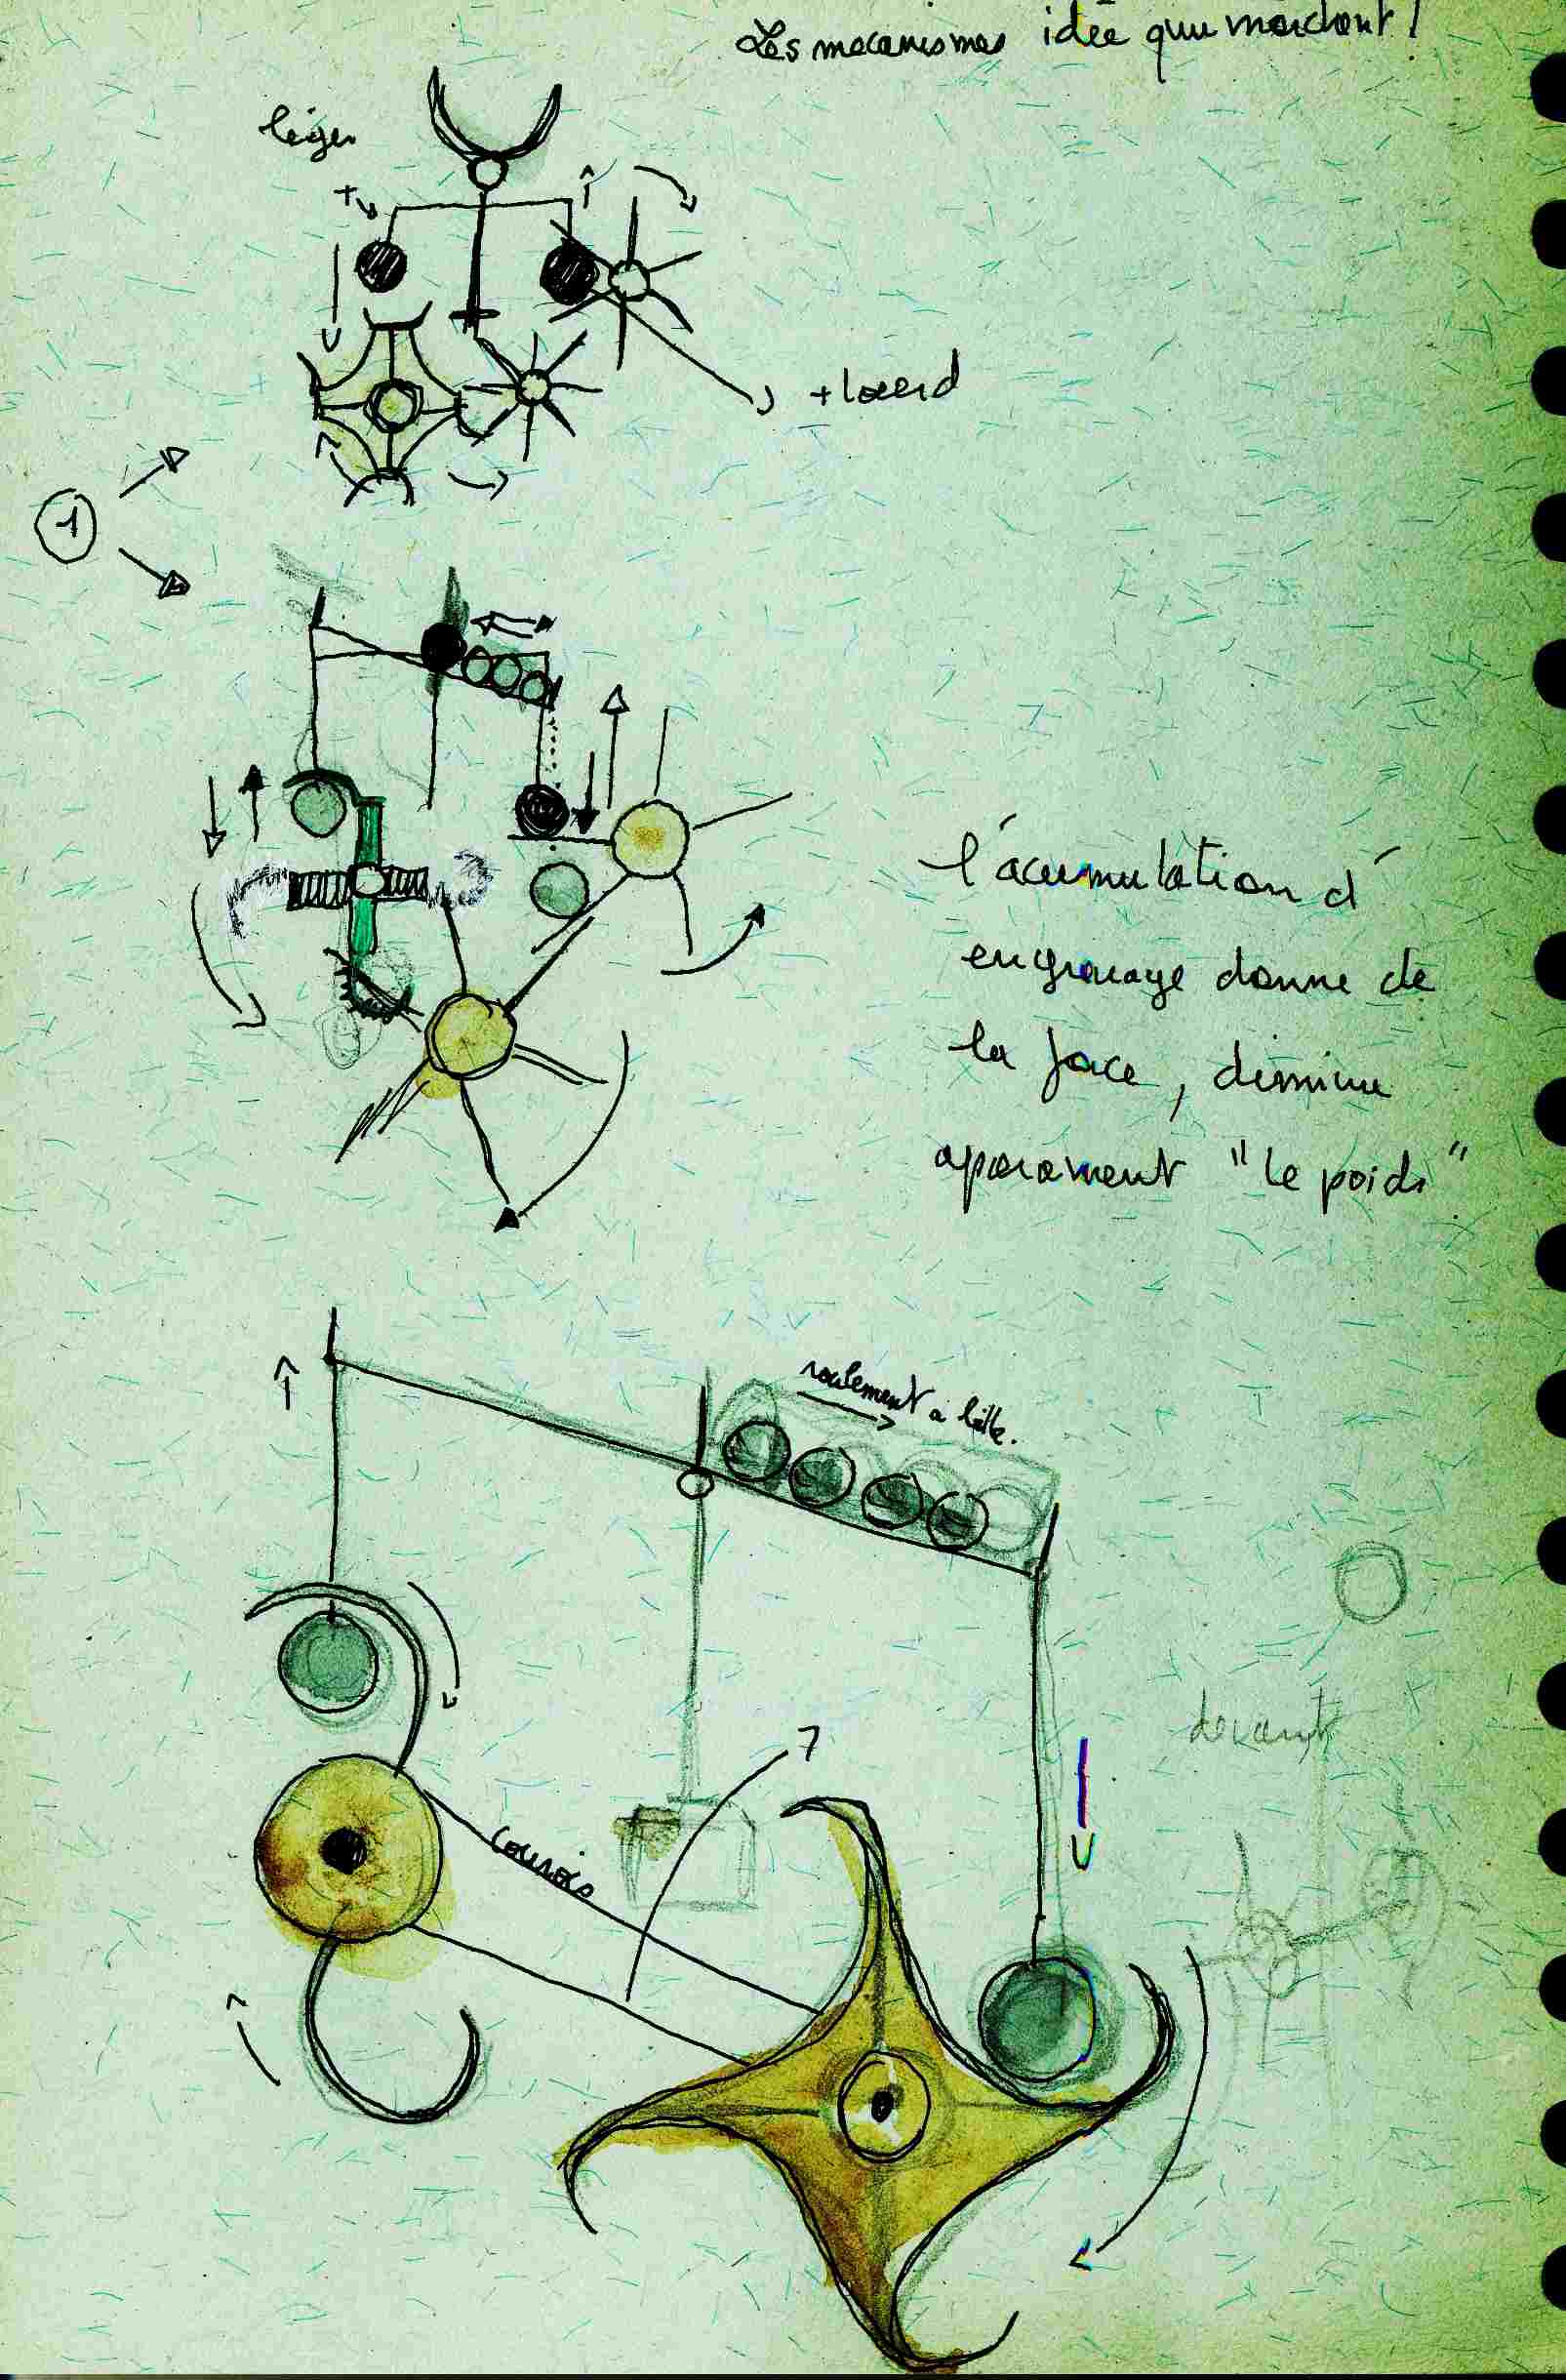 Les mecanismes idée que marchent !
léger
+
+ lourd
1
l'acumulation d'
engrenage donne de
la force, diminue
aparament "le poids"
roulement a bille.
7
devant